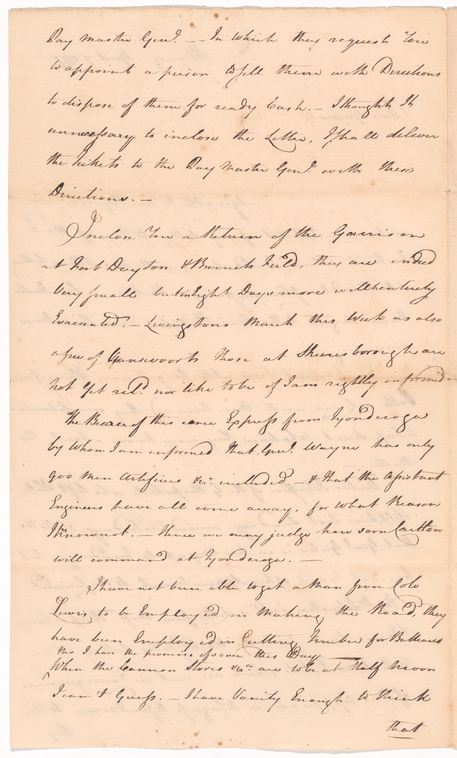 Pay Master Genl. — In which they request You
to appoint a person to sell them with Directions
to dispose of them for ready Cash. — I thought It
unnecessary to inclose the Letter, I shall deliver
the tickets to the Pay Master Genl. with these
Directions. —
I inclose You a Return of the Garrison
at Fort Dayton & Burnets Field, they are indeed
Very small but in Eight Days more will be entirely
Evacuated. — Livingstons March this Week as also
a few of Gansvoorts those at Skenesborough are
not yet reld. nor like to be if I am rightly informd. —
The Bearer of this came Express from Tyonderoga
by Whom I am informed that Genl. Wayne has only
900 Men Artificers &c. included — & that the Assistant
Engineers have all come away, for What Reason
I know not. — Hence we may judge how soon Carlton
will command at Tyonderoga. —
I have not been able to get a Man from Colo
Lewis to be Employed in Making the Road, they
have been Employed in Cutting Timber for Batteaus
tho I have the promise of some this Day
When the Cannon Stores &ca. are to be at Half Moon
I can't Guess. — I have Vanity Enough to think
that